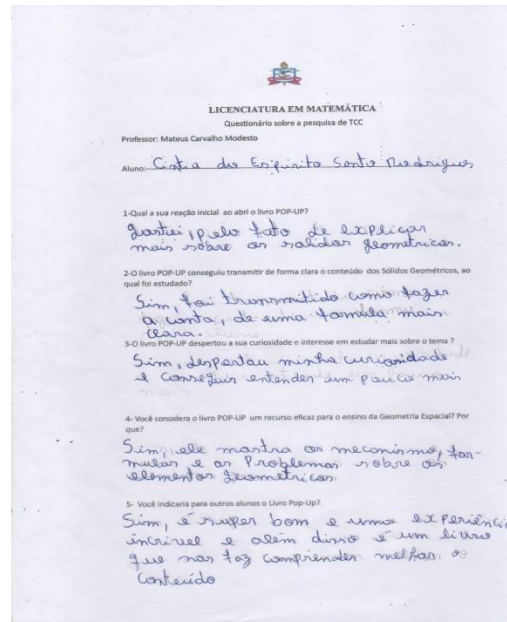 LICENCIATURA EM MATEMÁTICA
Questionário sobre a pesquisa de TCC
Professor: Mateus Carvalho Modesto
Aluno: Cintia do Espirito Santo Rodrigues
1-Qual a sua reação inicial ao abri o livro POP-UP?
Gostei, pelo fato de explicar
mais sobre os solidos geometricos.
2-O livro POP-UP conseguiu transmitir de forma clara o conteúdo dos Sólidos Geométricos, ao
qual foi estudado?
Sim, foi transmitido como fazer
a conta, de uma formula mais
clara.
3-O livro POP-UP despertou a sua curiosidade e interesse em estudar mais sobre o tema ?
Sim, despertou minha curiosidade
e conseguir entender um pouco mais
4- Você considera o livro POP-UP um recurso eficaz para o ensino da Geometria Espacial? Por
que?
Sim, ele mostra os meconismo, for-
mulas e os Problemas sobre os
elementos geometricos
5- Você indicaria para outros alunos o Livro Pop-Up?
Sim, é super bom e uma experiênci
incrivel e além disso é um livro
que nos faz comprender melhor o
Conteúdo